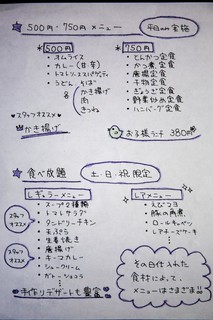 500円・750円 メニュー
平日のみ実施
500円
・オムライス
・カレー(甘・辛)
・トマトソーススパゲティ
・うどん そば
かき揚げ
肉
きつね
750円
・とんかつ定食
・かつ煮定食
・唐揚定食
・干物定食
・ぎょうざ定食
・野菜炒め定食
・ハンバーグ定食
スタッフオススメ
かき揚げ
お子様ランチ 380円
食べ放題
土・日・祝限定
レギュラーメニュー
・スープ2種類
・トマトサラダ
・タンドリーチキン
・天ぷら
・生姜焼き
・唐揚げ
・キーマカレー
・シュークリーム
・ガトーショコラ
スタッフ
オススメ
スタッフ
オススメ
手作りデザートも豊富
レアメニュー
・えびつヨ
・豚の角煮
・ロールキャベツ
・レアチーズケーキ
その日仕入れた
食材によって、
メニューはさまざま!!